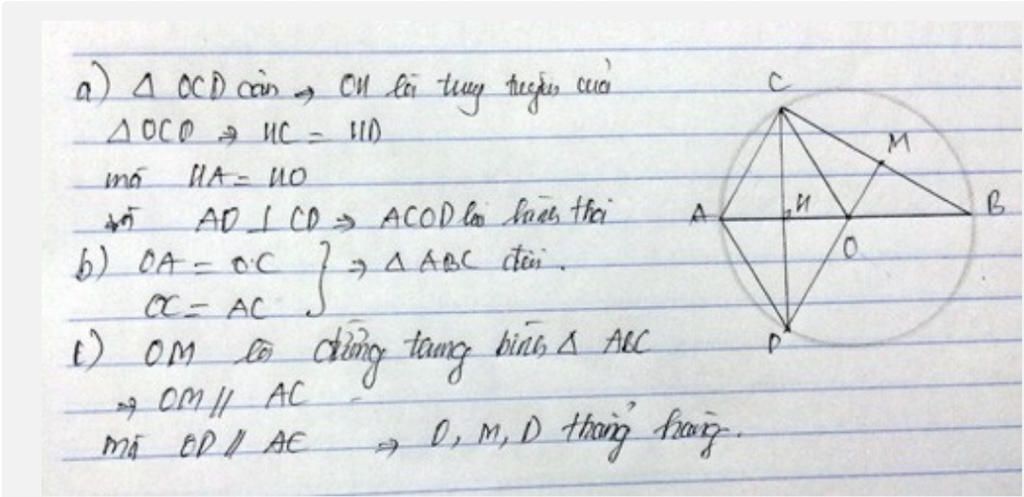 a) Δ OCD cân → OH là trung tuyến của
Δ OCD ⇒ HC = HD
mà HA = HO
và AO ⊥ CD ⇒ ACOD là hình thoi
b) OA = OC } ⇒ Δ ABC đều.
OC = AC
c) OM là đường trung bình Δ ABC
⇒ OM // AC
mà OD // AC ⇒ O, M, D thẳng hàng.
C
M
A
H
B
O
D